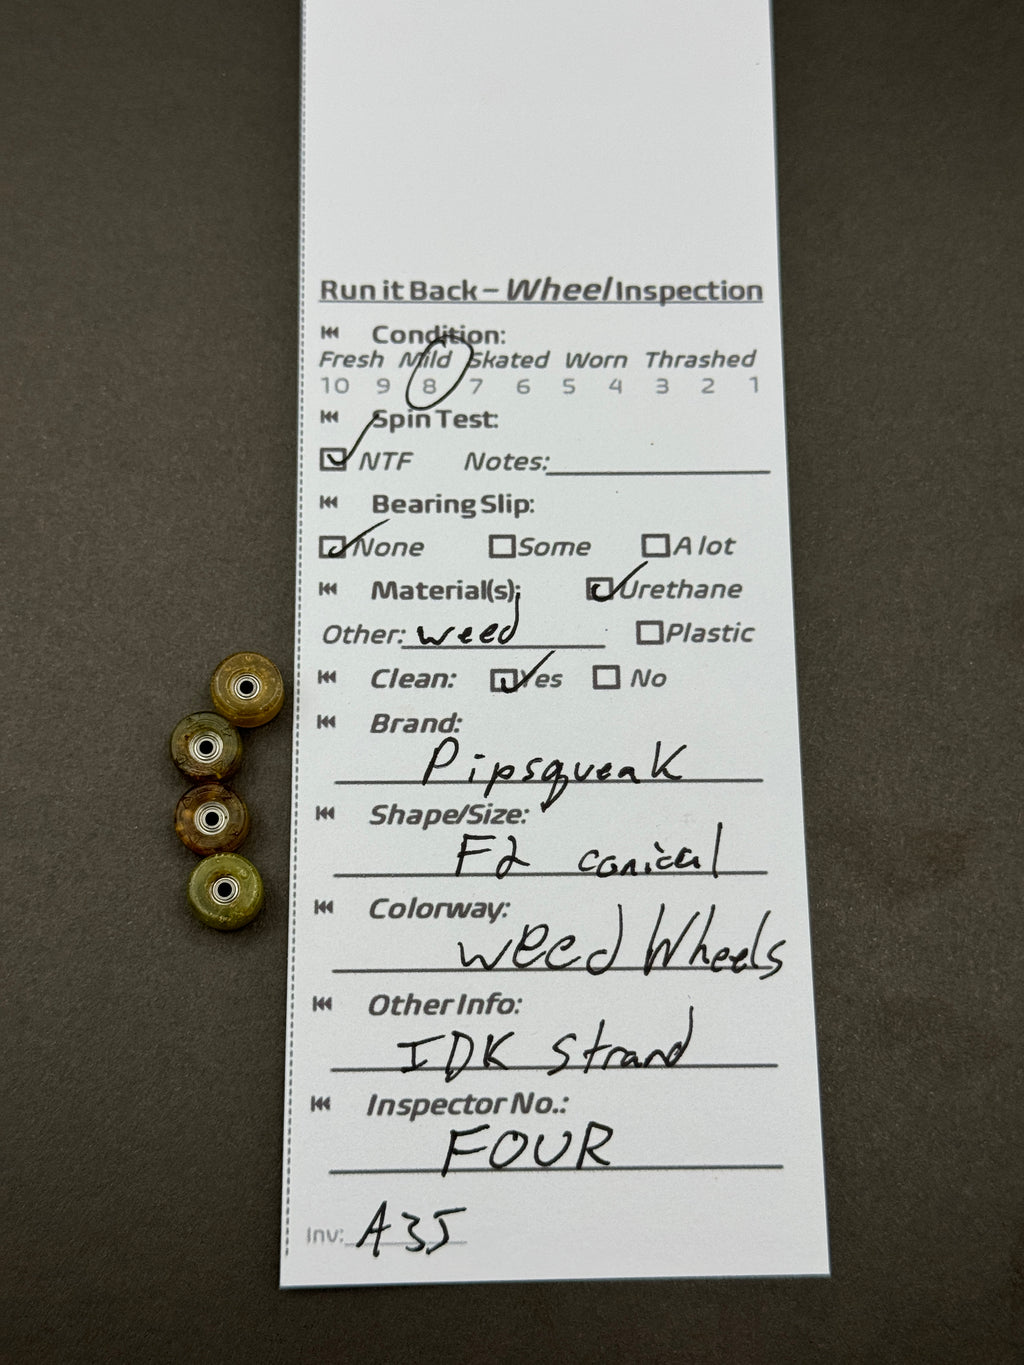 Run it Back – Wheel Inspection
Condition:
Fresh Mild Skated Worn Thrashed
10 9 8 7 6 5 4 3 2 1
Spin Test:
NTF Notes:
Bearing Slip:
None Some A lot
Material(s): Urethane
Other: weed Plastic
Clean: Yes No
Brand:
Pipsqueak
Shape/Size:
F2 conical
Colorway:
weed Wheels
Other Info:
IDK Strand
Inspector No.:
FOUR
Inv: A35